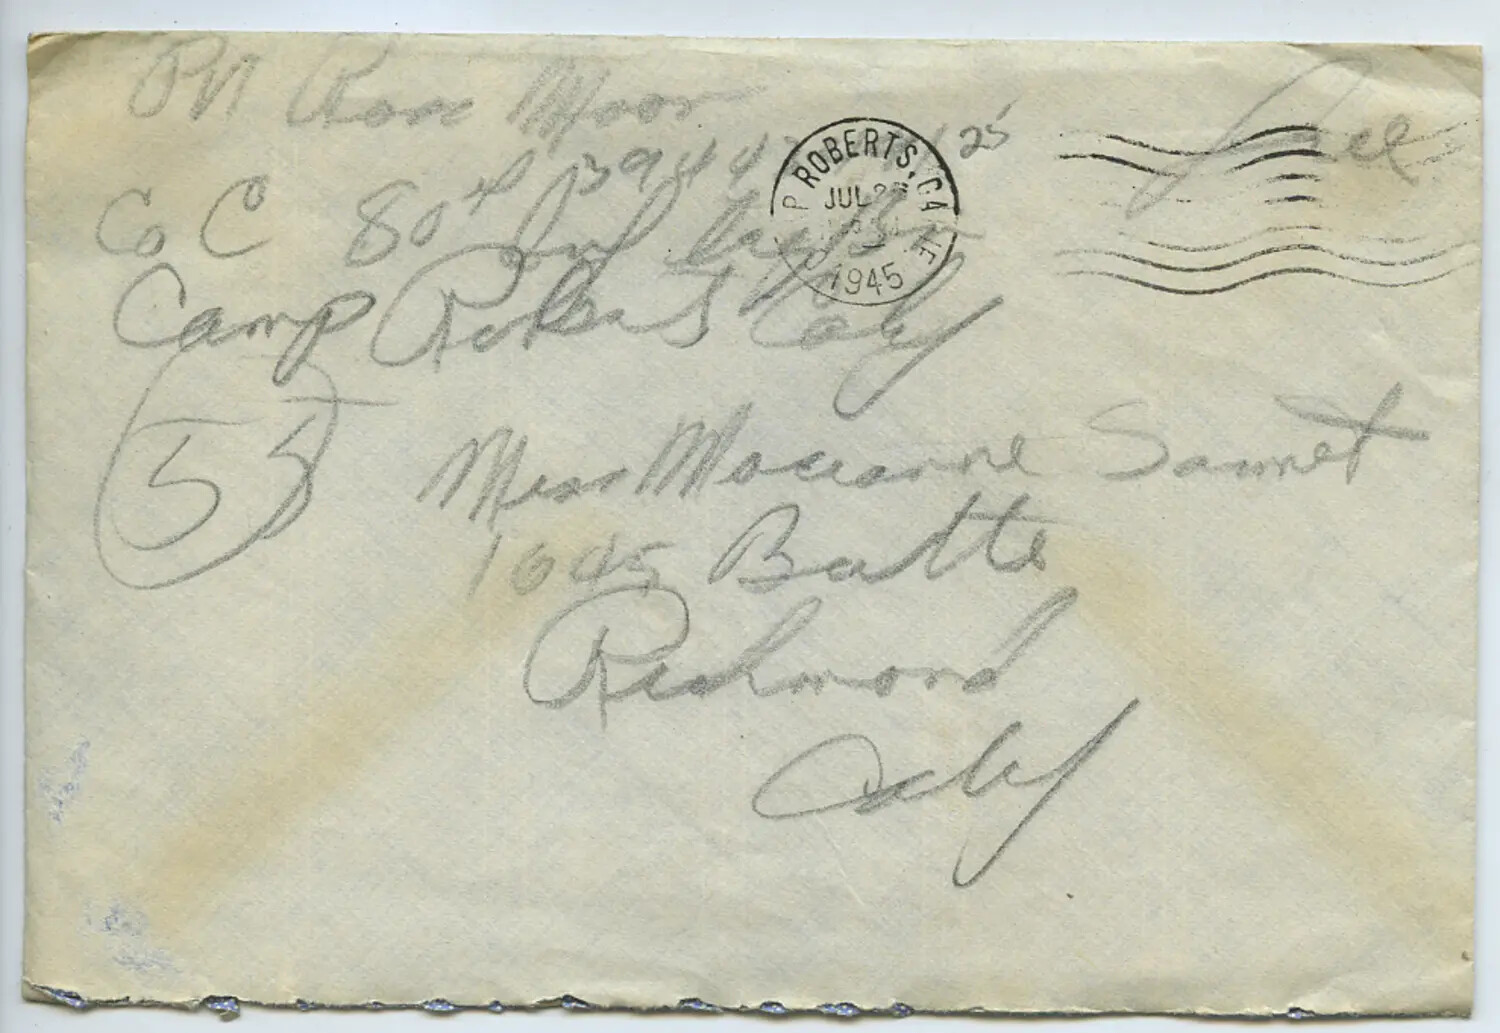 Pvt Ross Moor
39944 25
Co C 80th Inf Trg Bn
Camp Roberts Calif
P ROBERTS, CALIF
JUL
1945
Free
55
Miss Marianne Sannet
1645 Butte
Richmond
Calif